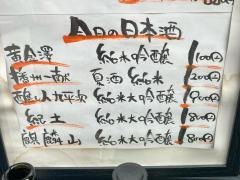 今日の日本酒
黄金澤 純米吟醸 1100円
播州一献 夏酒 純米 1200円
醸し人九平次 純米大吟醸 1900円
紀土 純米大吟醸 1800円
麒麟山 純米大吟醸 1800円